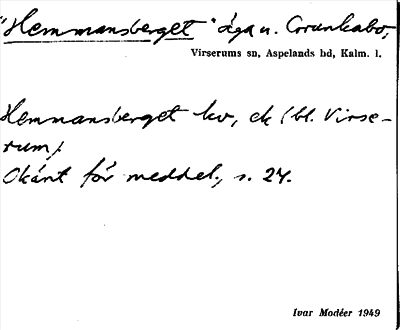 "Hemmansberget" äga u. Crunkabo,
Virserums sn, Aspelands hd, Kalm. l.
Hemmansberget kv, ek (bl. Virse-
rum).
Okänt för meddel., s. 24.
Ivar Modéer 1949